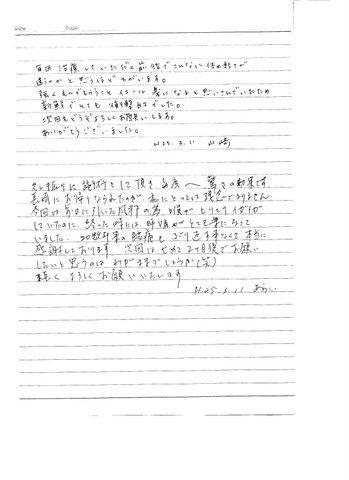 Date
Page
毎回 治療していただく前後でこんなに体の動きが
違うのかと思うほどちがいます。
強くもんでもらうこと イコール 楽になると思いこんでいたため
新鮮でとても 衝撃的でした。
次回もどうぞよろしくお願いします。
ありがとうございました。
H25. 3. 11 山崎
久し振りに 施術をして頂き 毎度〜 驚きの効果です
長崎にお帰りなられたのが、私にとっては残念でありません
今回は お正月にひいた風邪の為 喉がヒリヒリ イガイガ
していたのに、終った時には
いました. 20数年来の腰痛も ぶり返す事なくて 本当に
感謝しております 次回は せめて2ヶ月後でお願い
したいと思うのは わがままでしょうか(笑)
末長く よろしくお願いいたします
H25. 3. 11 あらい